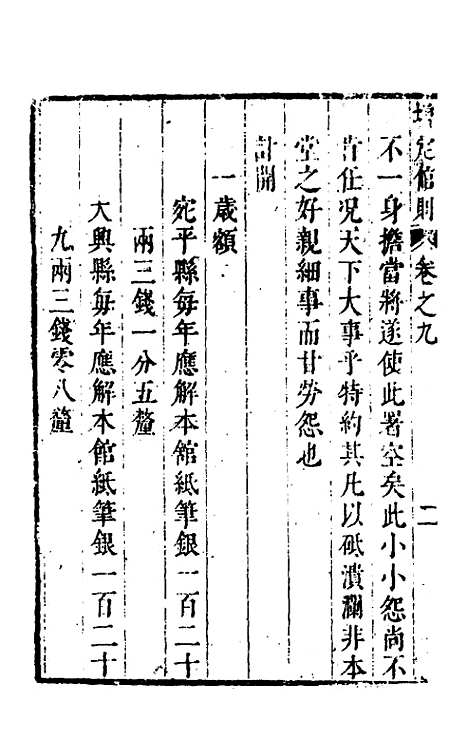 增定館則 卷之九 二
不一身擔當將遂使此署空矣此小小怨尚不
肯任况天下大事乎特約其凡以砥潰瀾非本
堂之好親細事而甘勞怨也
計開
一歲額
宛平縣每年應解本館紙筆銀一百二十
兩三錢一分五釐
大興縣每年應解本館紙筆銀一百二十
九兩三錢零八釐